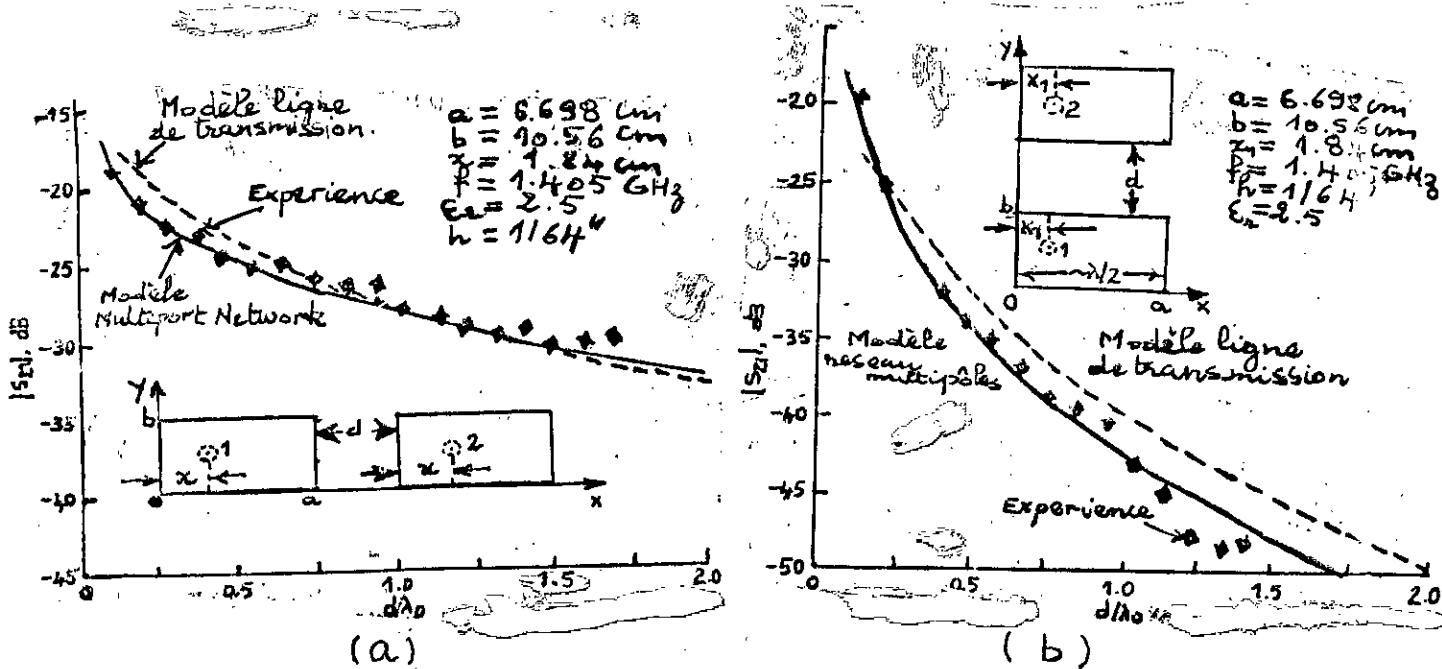 Modèle ligne
de transmission.
a = 6.698 cm
b = 10.56 cm
x = 1.84 cm
f = 1.405 GHz
εr = 2.5
h = 1/64"
Experience
Modèle
Multiport Network
|S21|, dB
-15
-20
-25
-30
-35
-45
0
0.5
1.0
1.5
2.0
d/λ0
y
b
1
x
a
d
2
x
x
(a)
a = 6.698 cm
b = 10.56 cm
x1 = 1.8 cm
h = 1/64"
εr = 2.5
y
x1
2
d
b
x1
1
λ/2
0
a
x
Modèle
reseau
multipôles
Modèle ligne
de transmission
Experience
|S21|, dB
-20
-25
-30
-35
-40
-45
-50
0
0.5
1.0
1.5
2.0
d/λ0
(b)